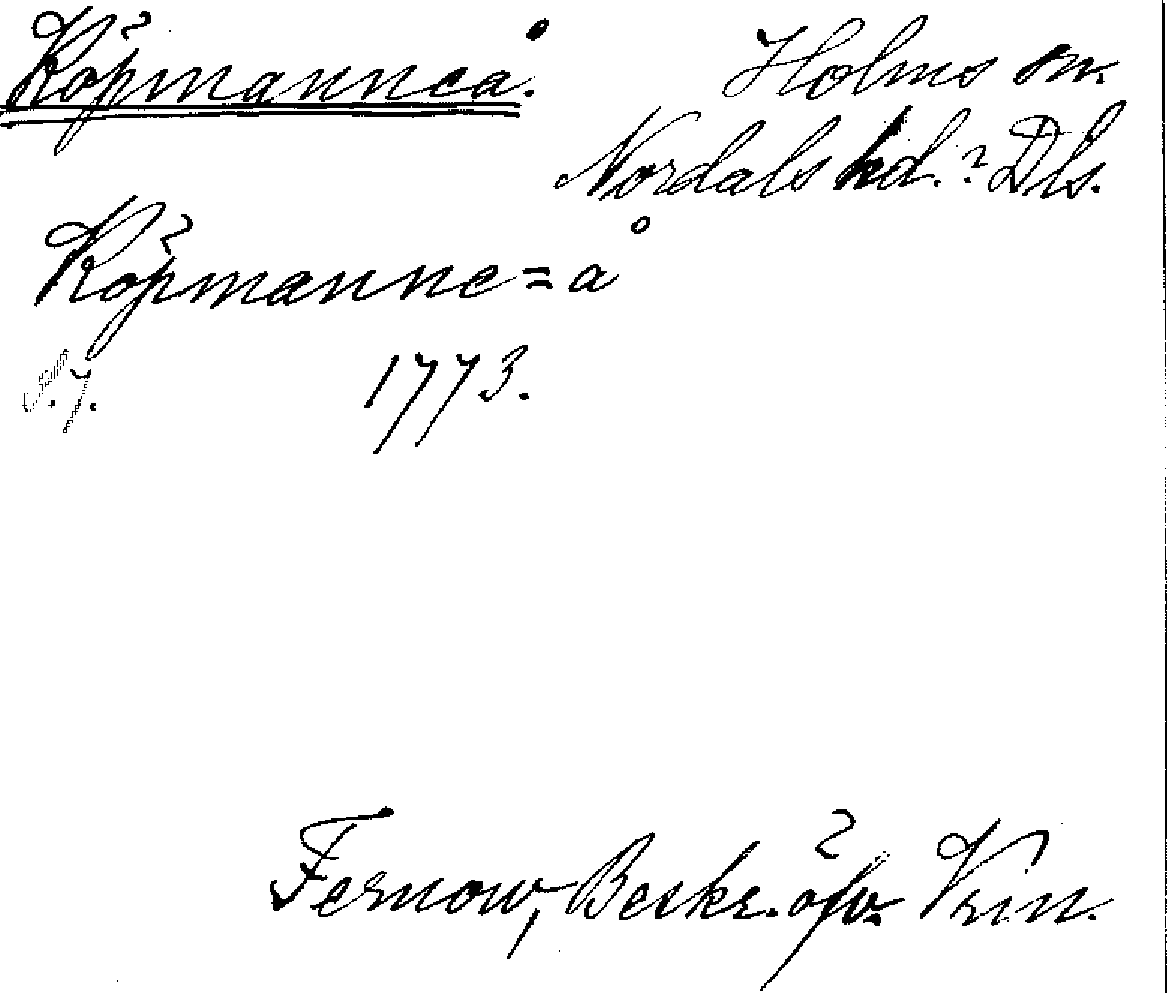 Köpmanneå. Holms sn.
Nordals hd.? Dls.
Köpmanne=å
S. 7. 1773.
Fernow, Beskr. öfv. Vrm.